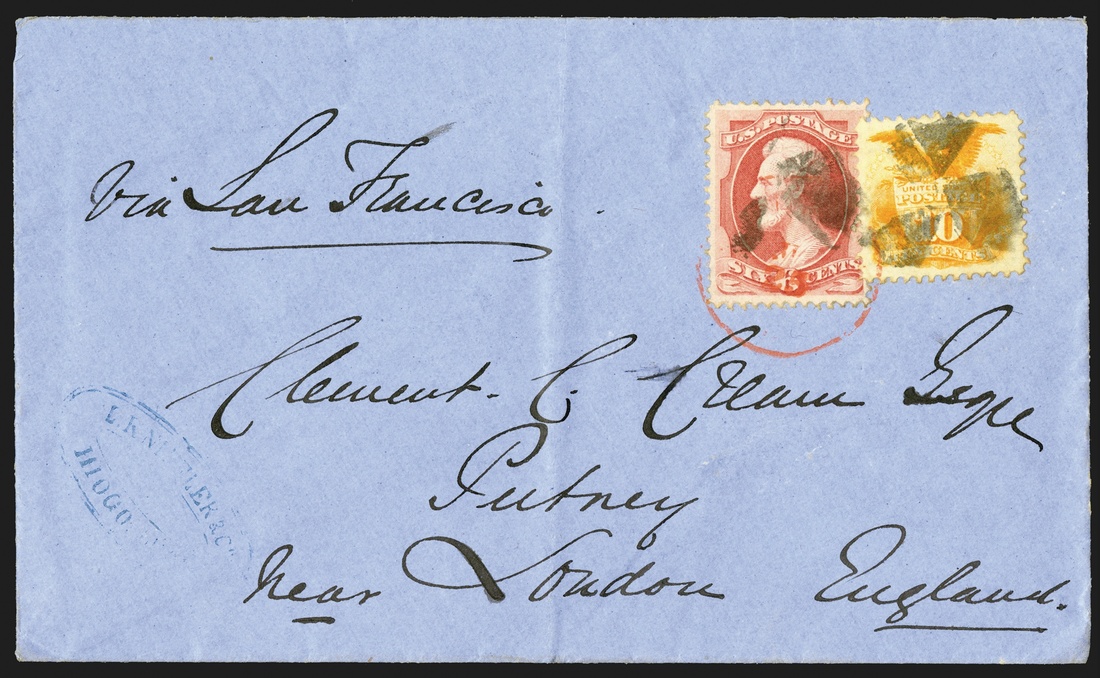 via San Francisco.
U.S. POSTAGE
SIX 6 CENTS
UNITED
POSTAGE
10
CENTS
Clement. C. Cream Esqre
Putney
near London England.
& Co
HIOGO